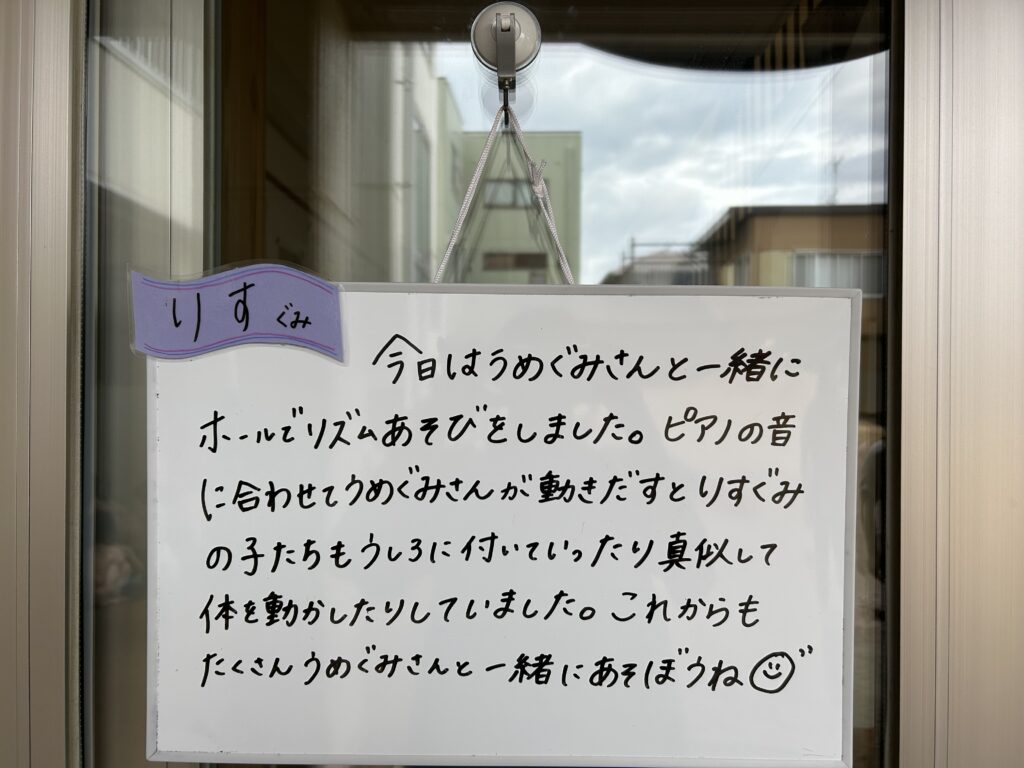 りすぐみ
今日はうめぐみさんと一緒に
ホールでリズムあそびをしました。ピアノの音
に合わせてうめぐみさんが動きだすとりすぐみ
の子たちもうしろに付いていったり真似して
体を動かしたりしていました。これからも
たくさんうめぐみさんと一緒にあそぼうね